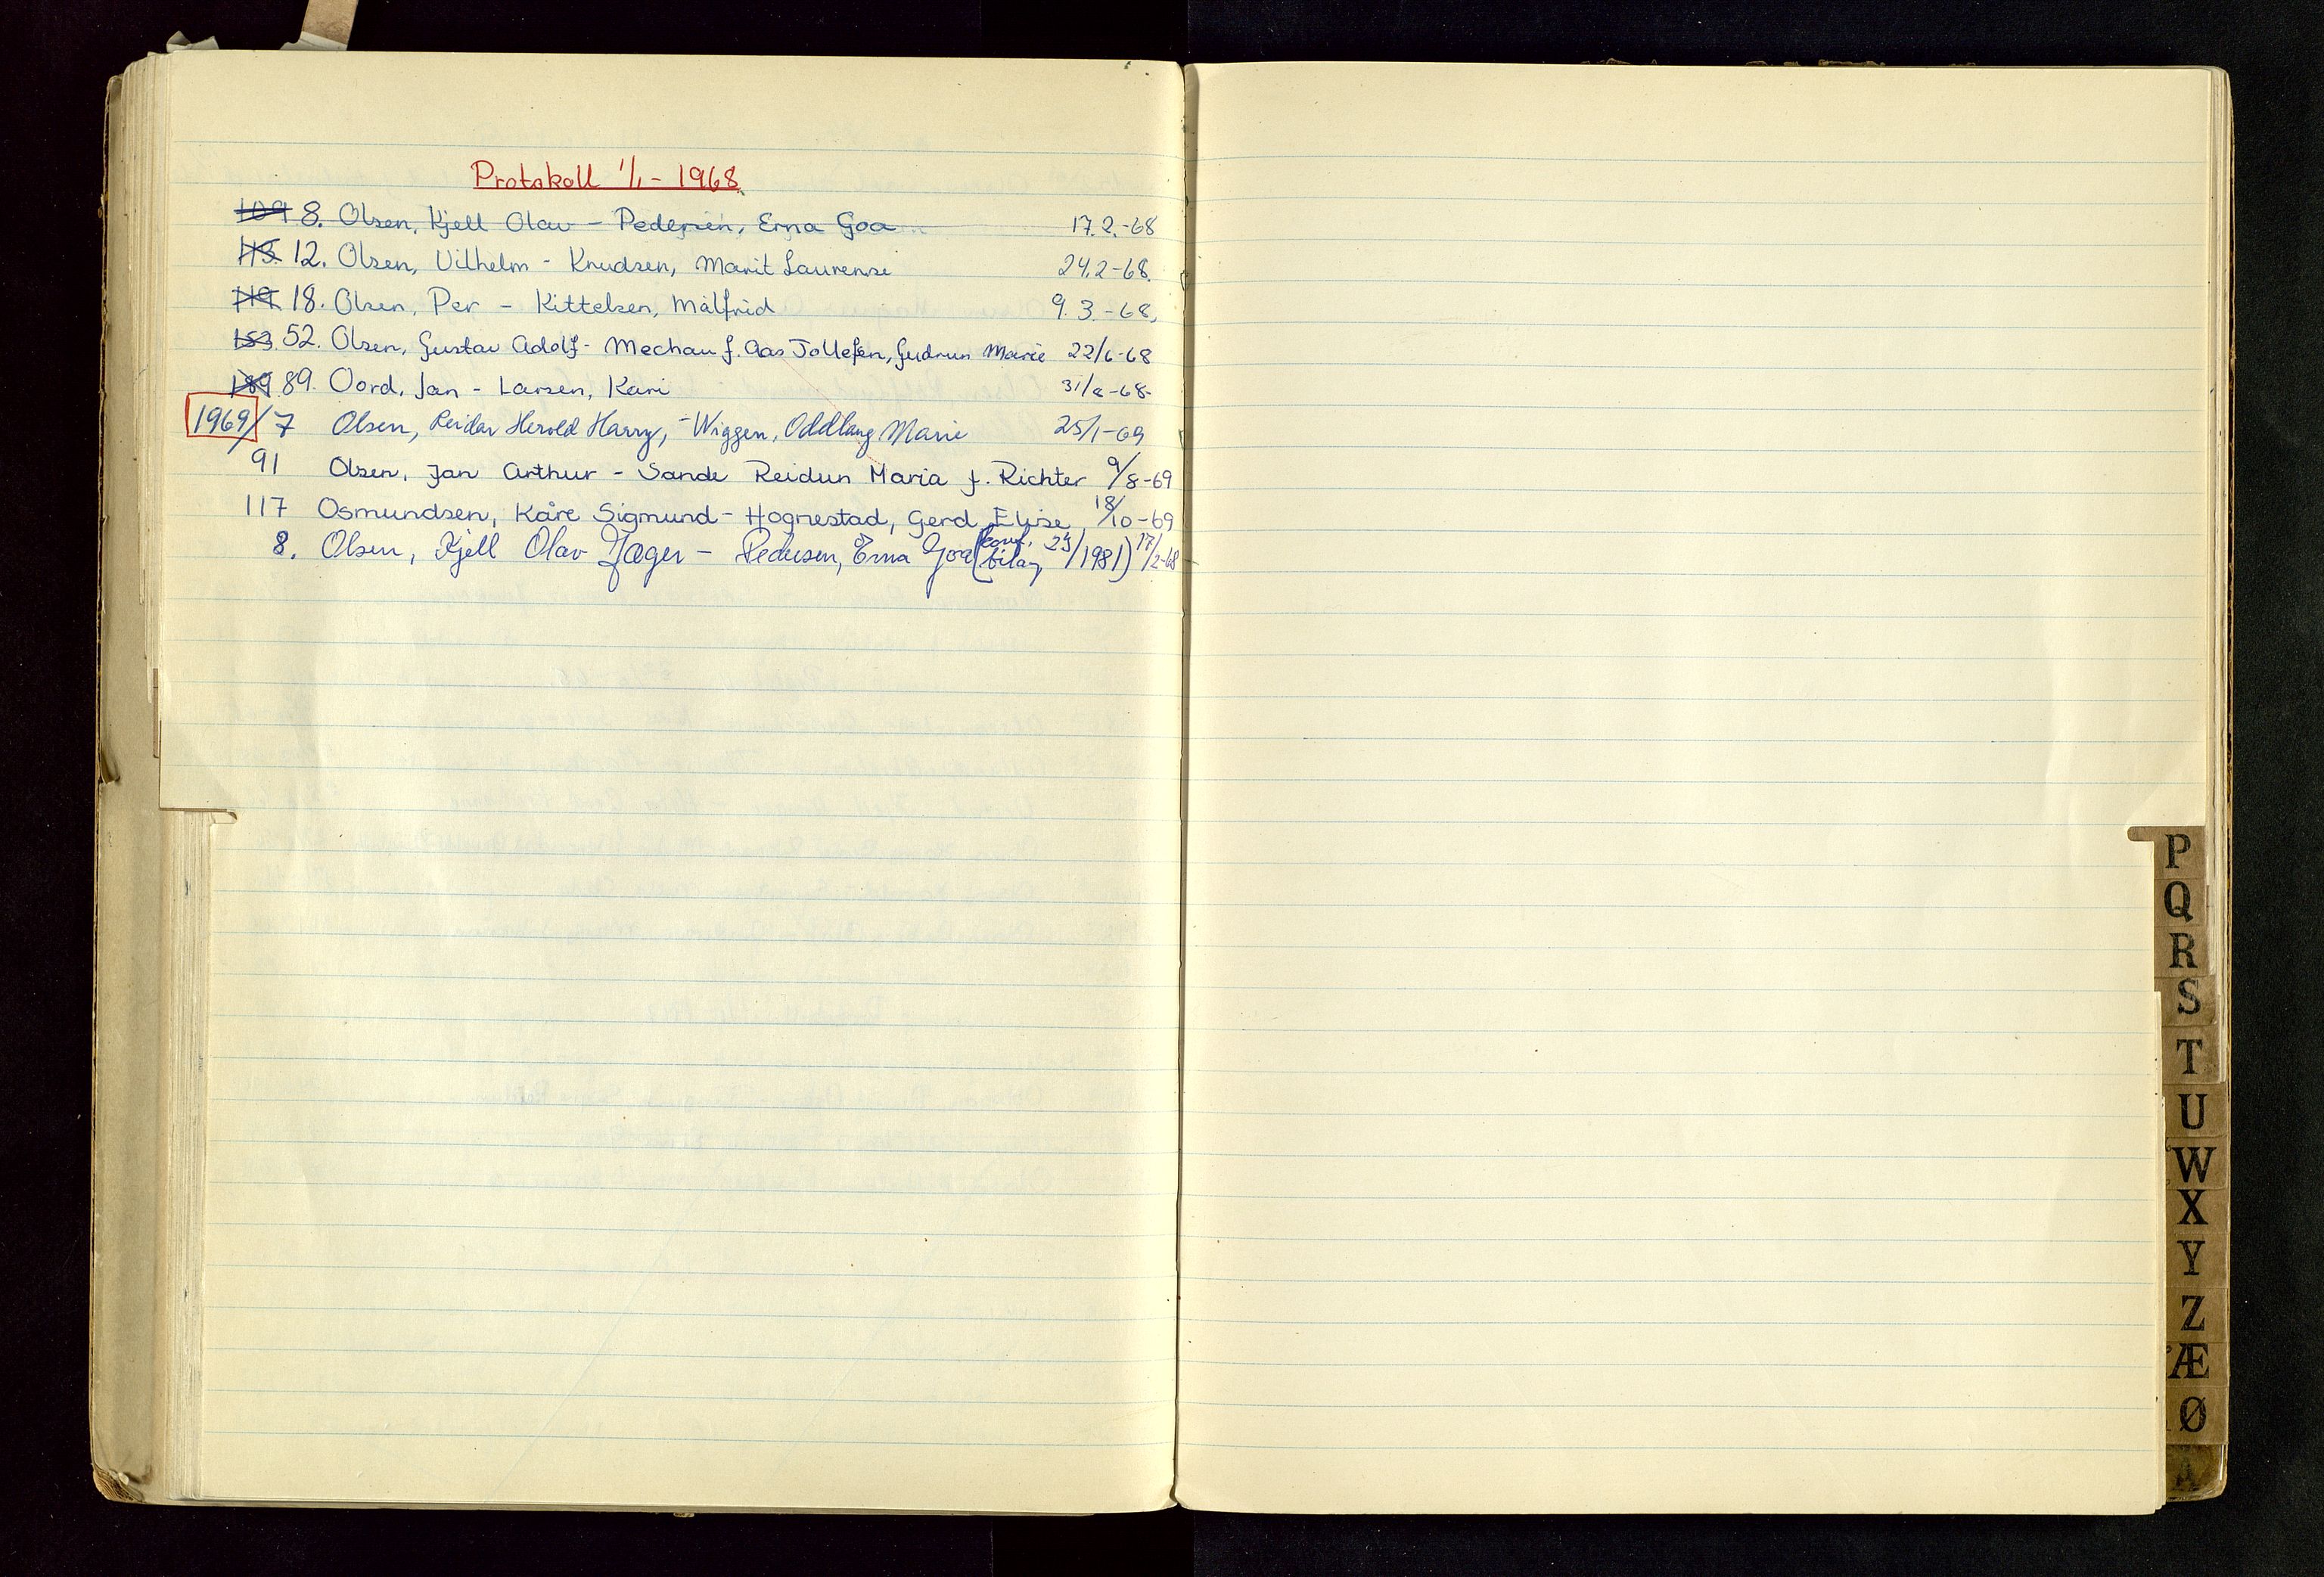 Protokoll 1/1 - 1968
109 8. Olsen, Kjell Olav - Pedersen, Erna Goa 17.2.-68
113. 12. Olsen, Vilhelm - Knudsen, Marit Laurense 24.2-68.
119. 18. Olsen, Per - Kittelsen, Målfrid 9.3.-68,
153. 52. Olsen, Gustav Adolf - Mechau f. Aas Tollefsen, Gudrun Marie 22/6-68
189 89. Oord, Jan - Larsen, Kari 31/8-68-
1969/7 Olsen, Reidar Herold Harry, - Wiggen, Oddlaug Marie 25/1-69
91 Olsen, Jan Arthur - Sande Reidun Maria f. Richter 9/8-69
117 Osmundsen, Kåre Sigmund - Hognestad, Gerd Elise 18/10-69
8. Olsen, Kjell Olav Jæger - Pedersen, Erna Goa (bilag /1981) 17/2-68
P
Q
R
S
T
U
W
X
Y
Z
Æ
Ø
Å